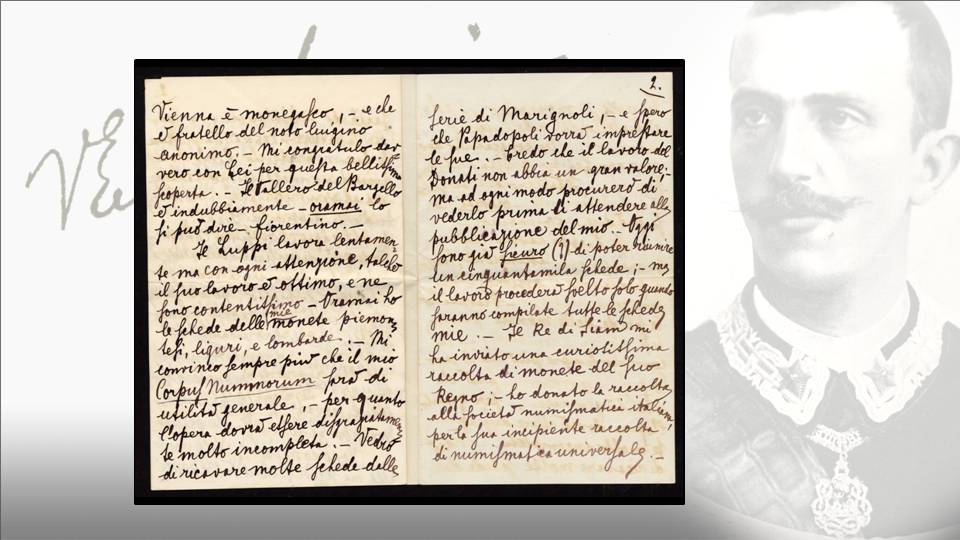 Vienna è monegasco, – e che
è fratello del noto luigino
anonimo. – Mi congratulo dav=
vero con Lei per questa bellissima
scoperta. – Il Tallero del Bargello
è indubbiamente – oramai lo
si può dire – fiorentino. –
Il Luppi lavora lentamen=
te ma con ogni attenzione, talchè
il suo lavoro è ottimo, e ne
sono contentissimo – Oramai ho
le schede delle mie monete piemon=
tesi, liguri, e lombarde. – Mi
convinco sempre più che il mio
Corpus Nummorum sarà di
utilità generale, – per quanto
l'opera dovrà essere disgraziatamen=
te molto incompleta. – Vedrò
di ricavare molte schede dalle
2.
serie di Marignoli, – e spero
che Papadopoli vorrà imprestare
le sue. – Credo che il lavoro del
Donati non abbia un gran valore; –
ma ad ogni modo procurerò di
vederlo prima di attendere alla
pubblicazione del mio. – Oggi
sono già sicuro (?) di poter riunire
un cinquantamila schede; – ma
il lavoro procederà svelto solo quando
saranno compilate tutte le schede
mie. – Il Re di Siam mi
ha inviato una curiosissima
raccolta di monete del suo
Regno; – ho donato la raccolta
alla società numismatica italiana,
per la sua incipiente raccolta
di numismatica universale. –